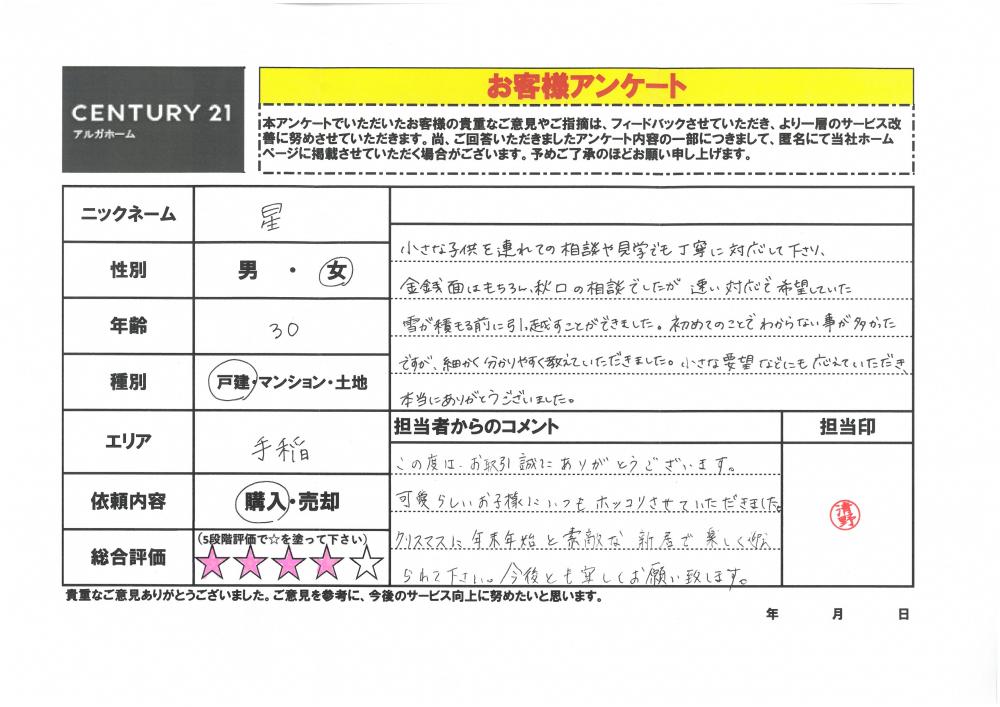 CENTURY 21
アルガホーム
お客様アンケート
本アンケートでいただいたお客様の貴重なご意見やご指摘は、フィードバックさせていただき、より一層のサービス改
善に努めさせていただきます。尚、ご回答いただきましたアンケート内容の一部につきまして、匿名にて当社ホーム
ページに掲載させていただく場合がございます。予めご了承のほどお願い申し上げます。
ニックネーム 星
性別 男 ・ 女
年齢 30
種別 戸建・マンション・土地
エリア 手稲
依頼内容 購入・売却
総合評価 (5段階評価で☆を塗って下さい)
小さな子供を連れての相談や見学でも丁寧に対応して下さり、
金銭面はもちろん、秋口の相談でしたが速い対応で希望していた
雪が積もる前に引っ越すことができました。初めてのことでわからない事が多かった
ですが、細かく分かりやすく教えていただきました。小さな要望などにも応えていただき、
本当にありがとうございました。
担当者からのコメント
担当印
この度は、お取引誠にありがとうございます。
可愛らしいお子様にいつもホッコリさせていただきました。
クリスマスに年末年始と素敵な新居で楽しく迎え
られて下さい。今後とも宜しくお願い致します。
清野
貴重なご意見ありがとうございました。ご意見を参考に、今後のサービス向上に努めたいと思います。
年 月 日